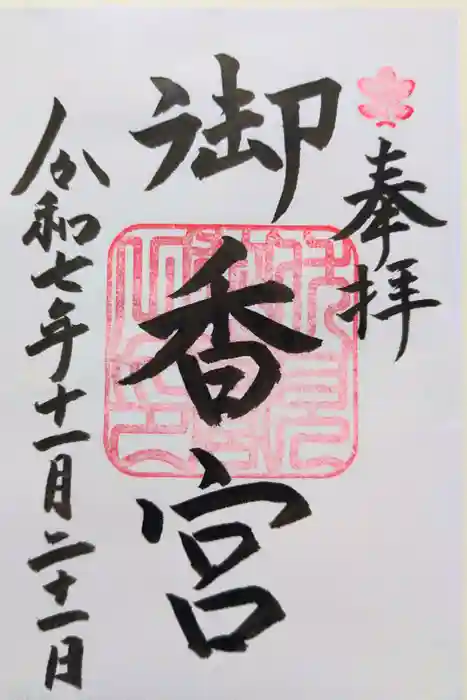 奉拝
御香宮
令和七年十一月二十一日